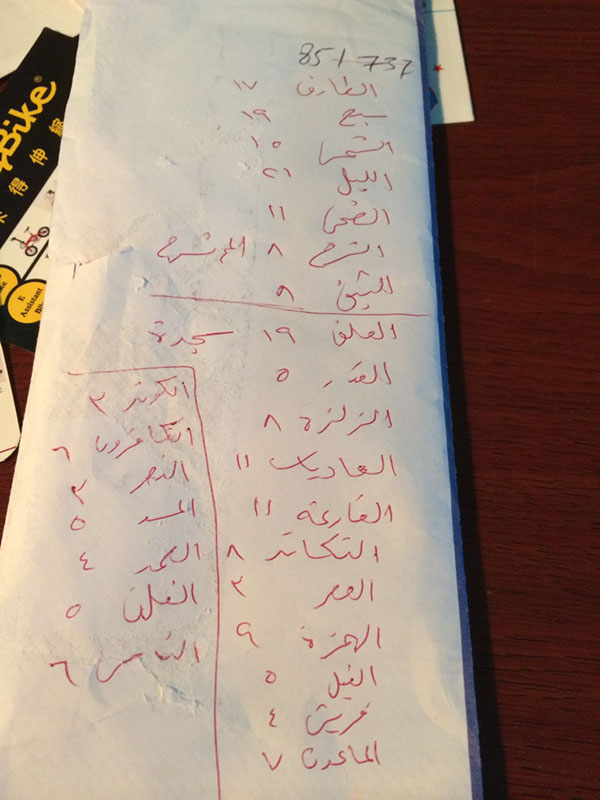 85/737
الطارق ١٧
سبح ١٩
الشمس ١٥
الليل ٢١
الضحى ١١
الشرح ٨ الم نشرح
التين ٨
العلق ١٩ سجدة
القدر ٥
الزلزلة ٨
العاديات ١١
القارعة ١١
التكاثر ٨
العصر ٣
الهمزة ٩
الفيل ٥
قريش ٤
الماعون ٧
الكوثر ٣
الكافرون ٦
النصر ٣
المسد ٥
الصمد ٤
الفلق ٥
الناس ٦
Bike®
得伸縮
E
Assistant